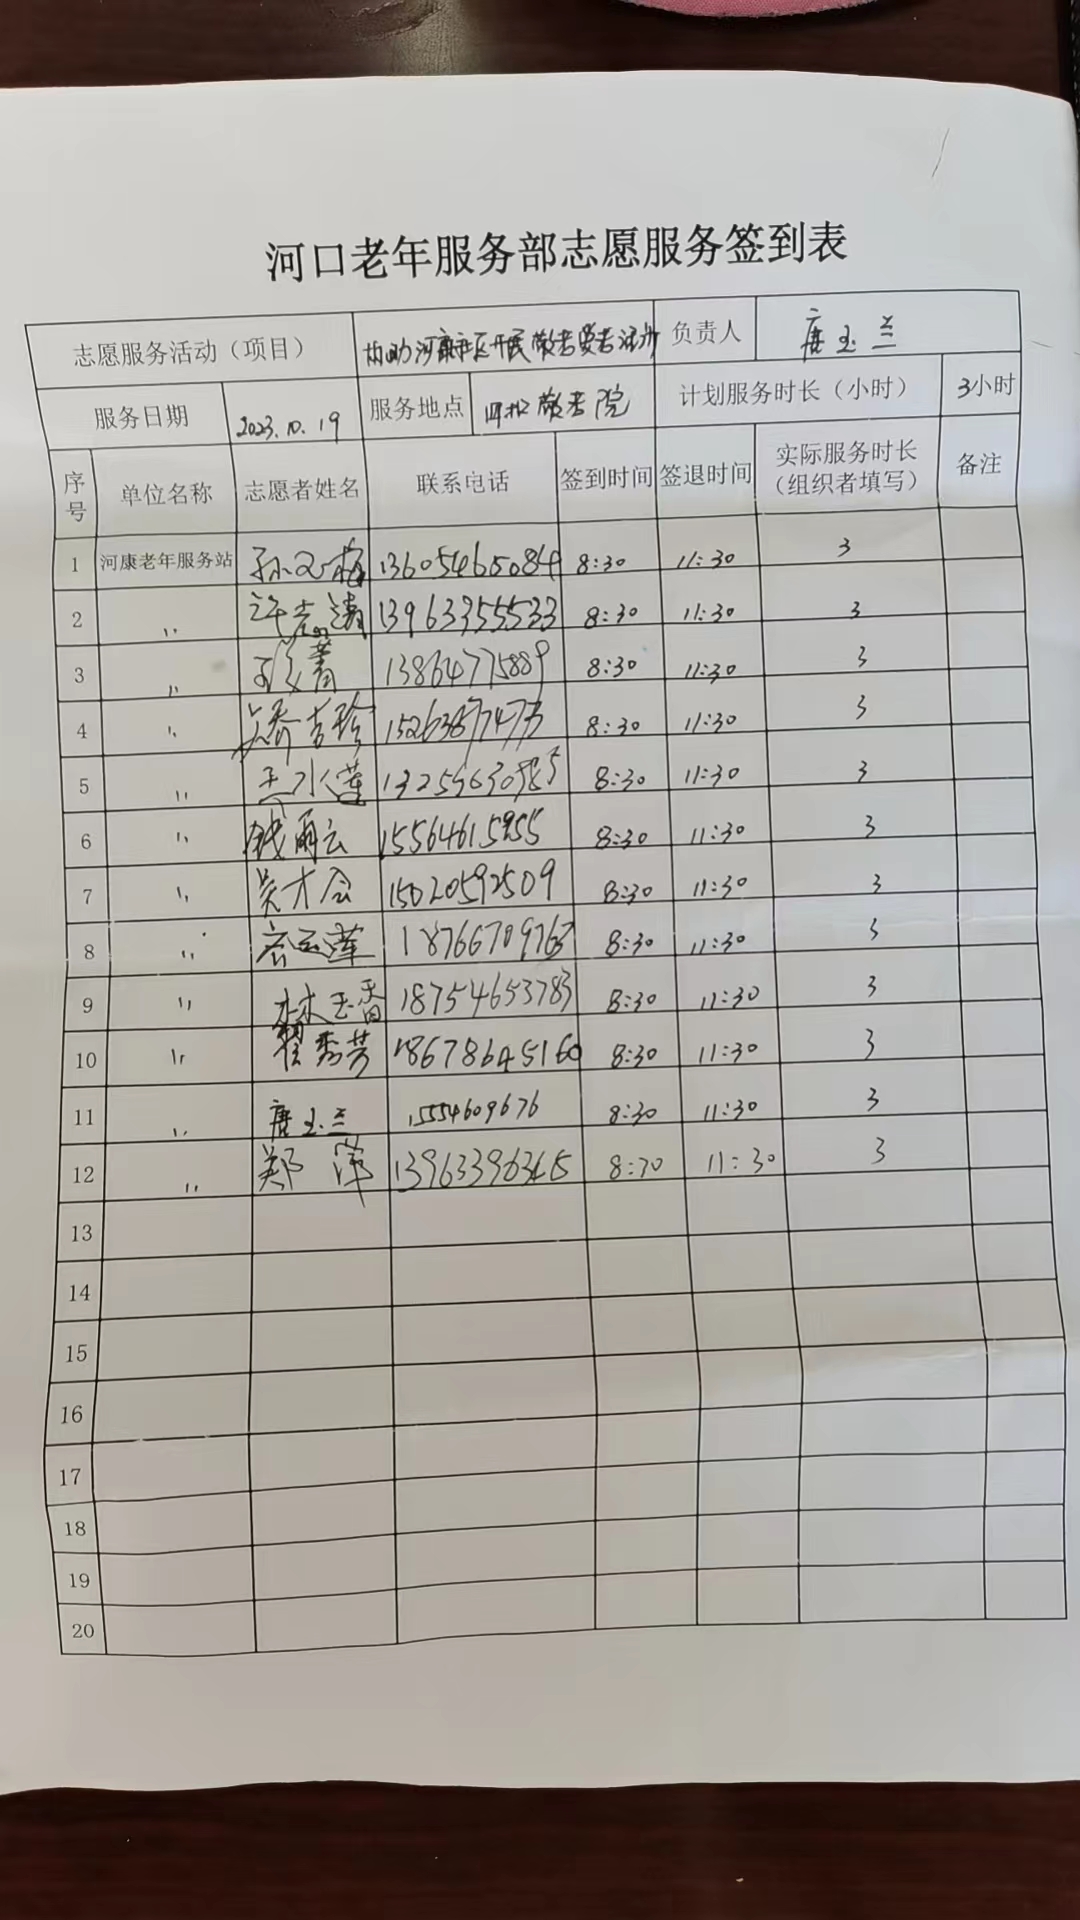 河口老年服务部志愿服务签到表
志愿服务活动（项目） 协助河康社区开展敬老爱老活动 负责人 唐玉兰
服务日期 2023.10.19 服务地点 敬老院 计划服务时长（小时） 3小时
序号 单位名称 志愿者姓名 联系电话 签到时间 签退时间 实际服务时长（组织者填写） 备注
1 河康老年服务站 孙文梅 13605465084 8:30 11:30 3
2 〃 许志清 13963355533 8:30 11:30 3
3 〃 13864775889 8:30 11:30 3
4 〃 8:30 11:30 3
5 〃 8:30 11:30 3
6 〃 钱雨云 15564615955 8:30 11:30 3
7 〃 吴才会 15020592509 8:30 11:30 3
8 〃 18766709763 8:30 11:30 3
9 〃 林玉香 18754653783 8:30 11:30 3
10 〃 翟秀芳 18678645160 8:30 11:30 3
11 〃 唐玉兰 15554609676 8:30 11:30 3
12 〃 郑萍 8:30 11:30 3
13
14
15
16
17
18
19
20